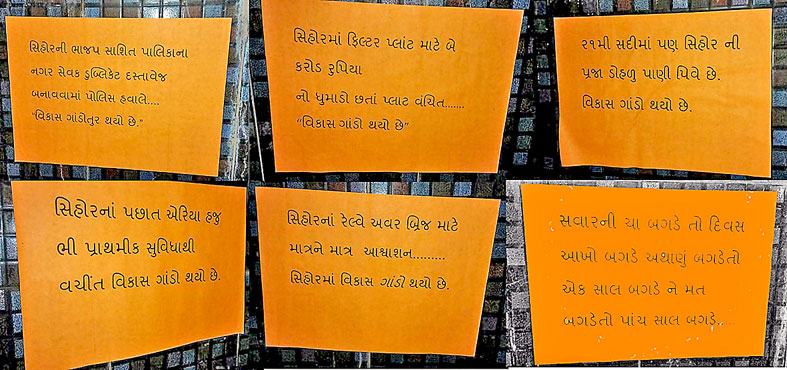 સિહોરની ભાજપ સાશિત પાલિકાના
નગર સેવક ડુબ્લિકેટ દસ્તાવેજ
બનાવવામાં પોલિસ હવાલે....
"વિકાસ ગાંડોતુર થયો છે."
સિહોરમાં ફિલ્ટર પ્લાંટ માટે બે
કરોડ રુપિયા
નો ધુમાડો છતાં પ્લાટ વંચિત.......
"વિકાસ ગાંડો થયો છે"
૨૧મી સદીમાં પણ સિહોર ની
પ્રજા ડોહળુ પાણી પિવે છે.
વિકાસ ગાંડો થયો છે.
સિહોરનાં પછાત એરિયા હજુ
ભી પ્રાથમીક સુવિધાથી
વચીંત વિકાસ ગાંડો થયો છે.
સિહોરનાં રેલ્વે અવર બ્રિજ માટે
માત્રને માત્ર આશ્વાશન.........
સિહોરમાં વિકાસ ગાંડો થયો છે.
સવારની ચા બગડે તો દિવસ
આખો બગડે અથાણું બગડેતો
એક સાલ બગડે ને મત
બગડેતો પાંચ સાલ બગડે....